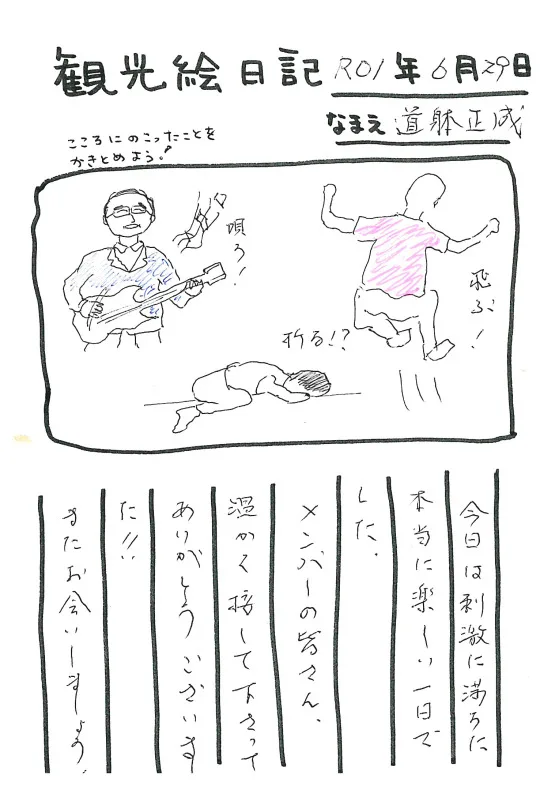 観光絵日記 R01年6月29日
なまえ 道躰正成
こころにのこったことを
かきとめよう!
唄う!
飛ぶ!
祈る!?
今日は刺激に満ちた
本当に楽しい一日で
した。
メンバーの皆さん、
温かく接して下さって
ありがとうございまし
た!!
またお会いしましょう。